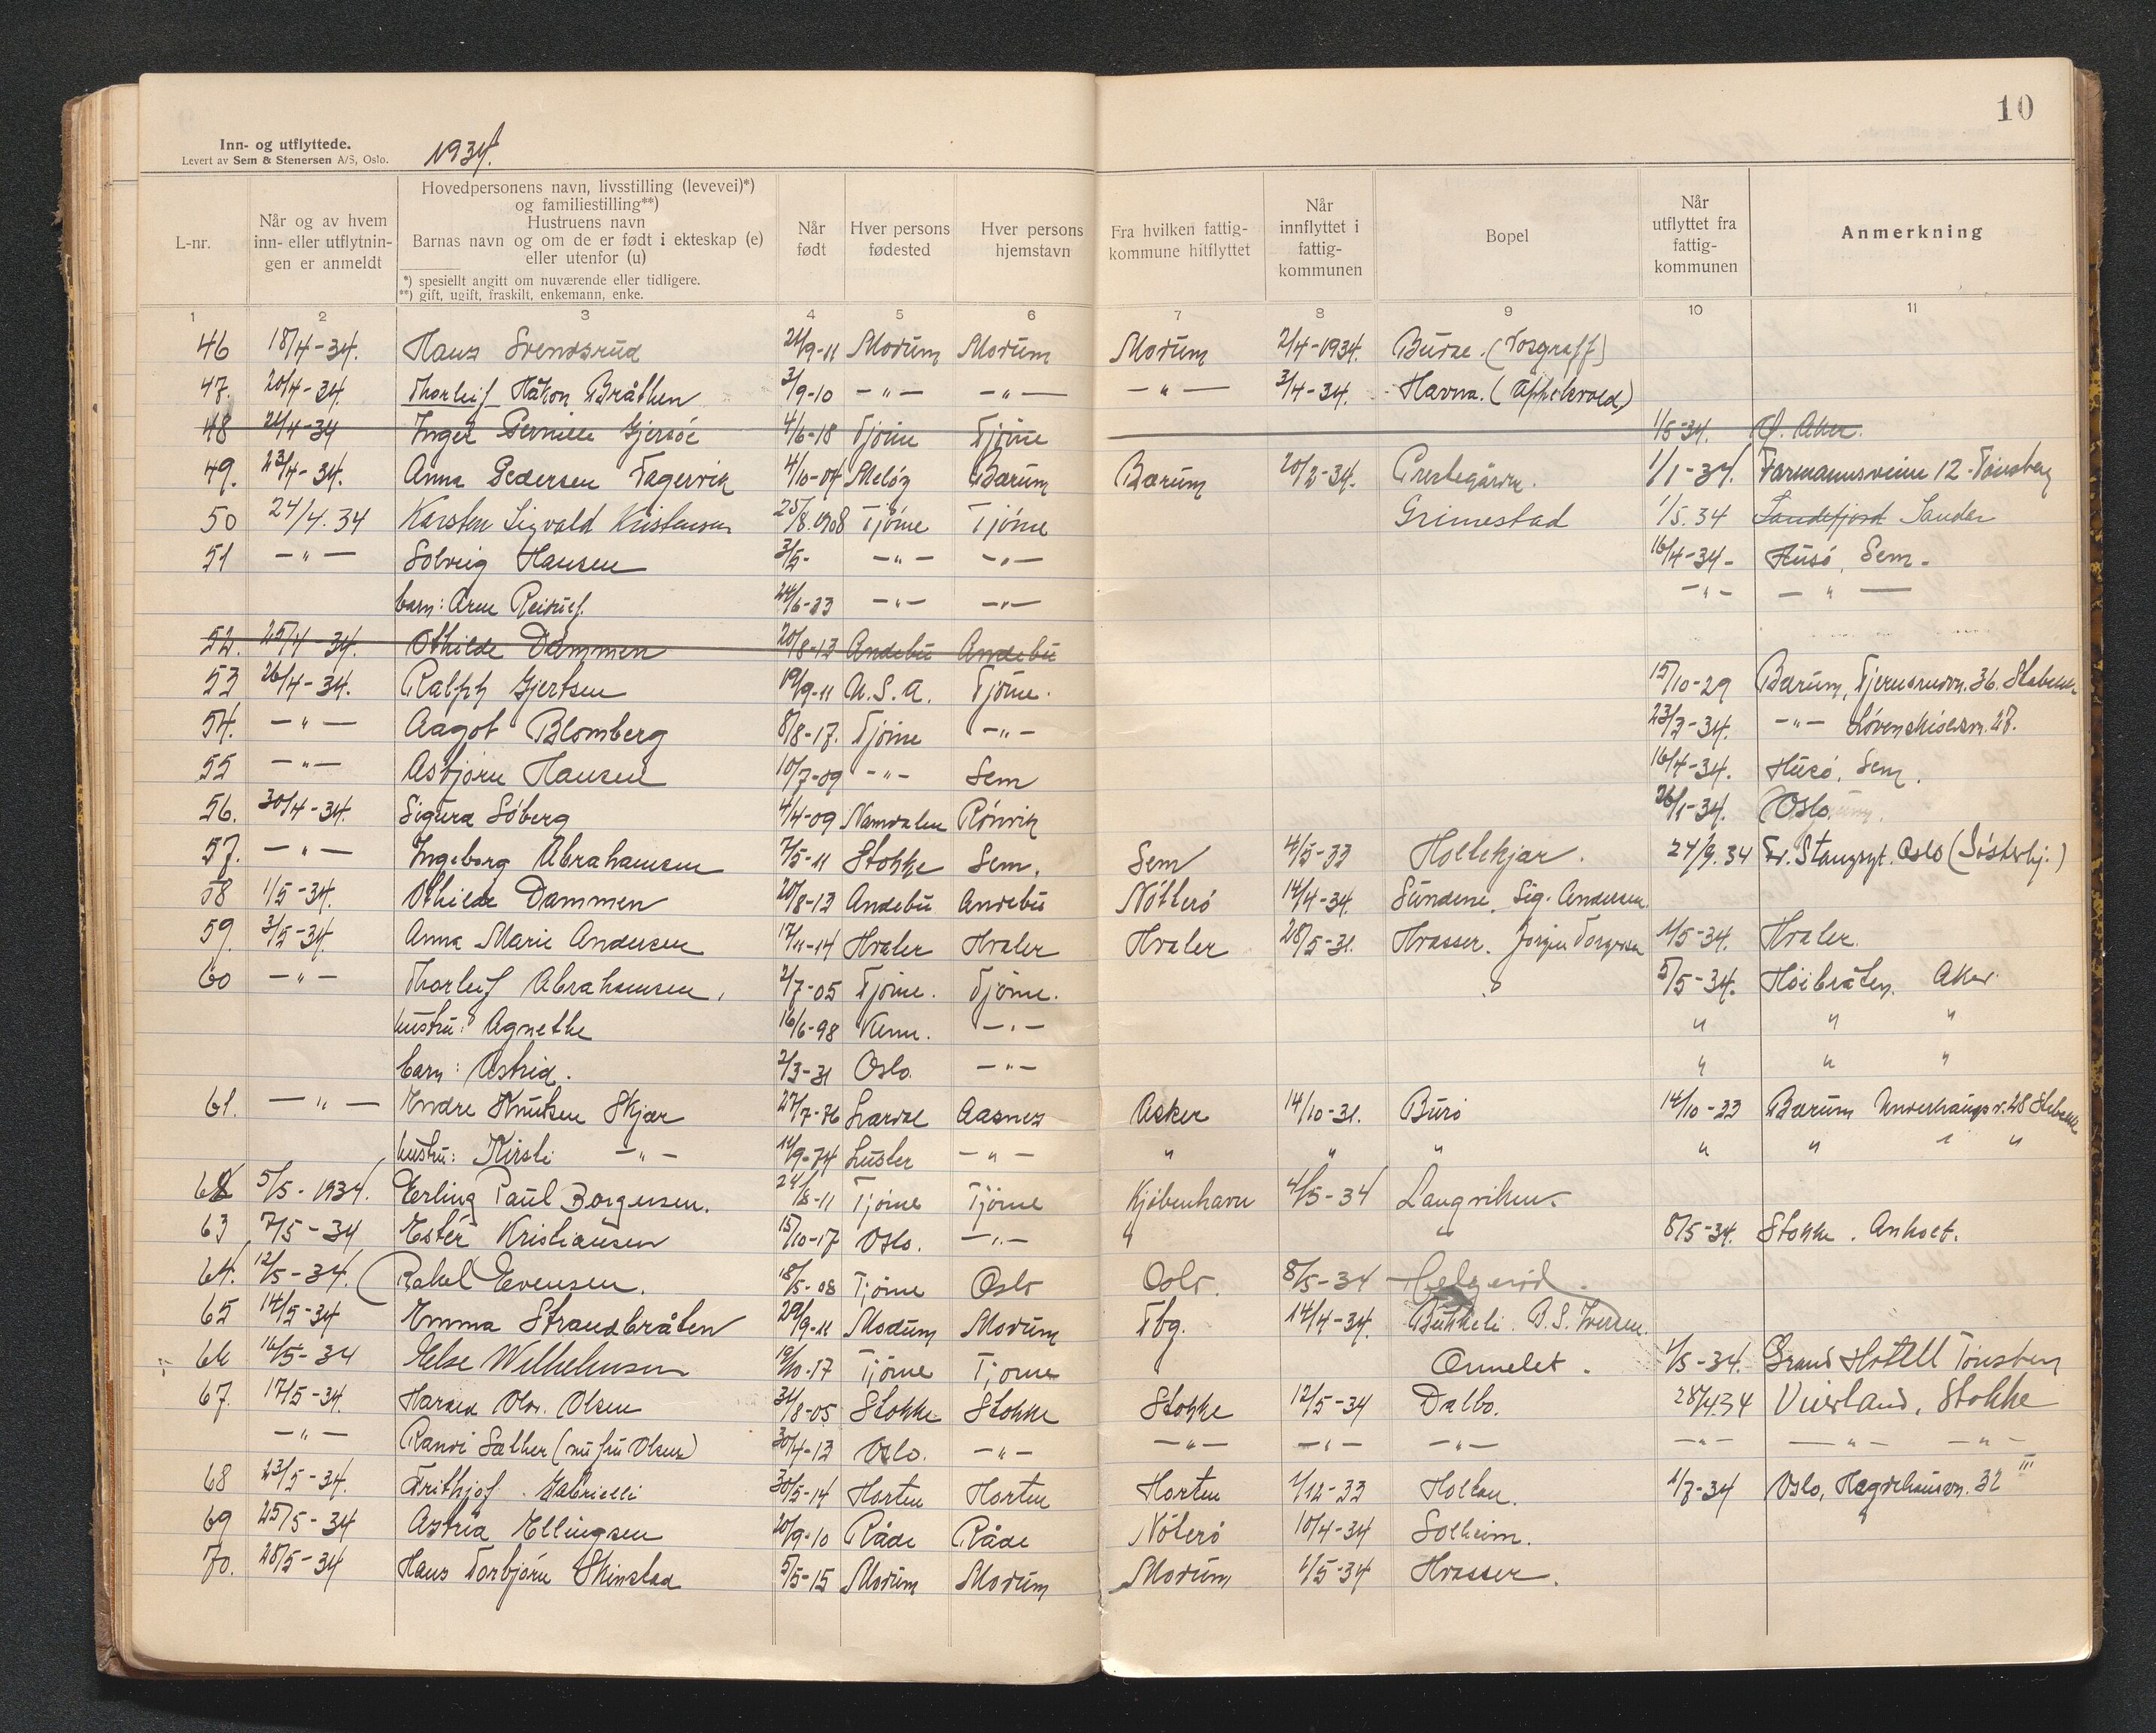 10
Inn- og utflyttede.
Levert av Sem & Stenersen A/S, Oslo.
1934.
L-nr.
Når og av hvem inn- eller utflytnin-gen er anmeldt
Hovedpersonens navn, livsstilling (levevei)*)
og familiestilling**)
Hustruens navn
Barnas navn og om de er født i ekteskap (e)
eller utenfor (u)
*) spesiellt angitt om nuværende eller tidligere.
**) gift, ugift, fraskilt, enkemann, enke.
Når født
Hver persons fødested
Hver persons hjemstavn
Fra hvilken fattig-kommune hitflyttet
Når innflyttet i fattig-kommunen
Bopel
Når utflyttet fra fattig-kommunen
Anmerkning
1 2 3 4 5 6 7 8 9 10 11
46 18/4-34. Hans Svendsrud 21/9-11 Modum Modum Modum 2/4-1934. Burse. (Vosgraff)
47. 20/4-34. Thorleif Håkon Bråthen 3/9-10 -"- -"- -"- 3/4-34. Havna. (Appelsvold)
48 21/4-34 Inger Pernille Gjersøe 4/6-18 Tjøme Tjøme 1/5-34. Ø. Aker.
49. 23/4-34. Anna Pedersen Fagervik 4/10-04 Meløy Bærum Bærum 20/2-34. Prestegården. 1/1-34. Farmannsveien 12-Tønsberg
50 24/4.34 Karsten Sigvald Kristensen 25/8.1908 Tjøme Tjøme Grimestad 1/5.34 Sandefjord Sandar
51 -"- Solveig Hansen 3/5- -"- -"- 16/4-34- Husø, Sem.
barn: Arne Reidulf. 24/6-33 -"- -"- -"- -"-
52. 25/4-34. Othilde Dammen 20/8-13 Andebu Andebu
53 26/4-34. Ralph Gjertsen 19/9-11 U.S.A. Tjøme. 15/10-29 Bærum, Fjernsrudvn. 36. Stabekk
54. -"- Aagot Blomberg 8/8-17. Tjøme -"- 23/2-34. -"- Løvenskioldsvn. 27.
55 -"- Asbjørn Hansen 10/7-09 -"- Sem 16/4-34. Husø, Sem.
56. 30/4-34. Sigurd Søberg 4/4-09 Namdalen Rønvik 26/1-34. Oslo.
57. -"- Ingeborg Abrahamsen 7/5-11 Stokke Sem. Sem 4/5-33 Hollekjær. 24/9.34 Fr. Stangsgt. Oslo (Søsterhj.)
58 1/5-34. Othilde Dammen 20/8-13 Andebu Andebu Nøtterø 14/4-34. Sundene, Sig. Andersen.
59. 3/5-34. Anna Marie Andersen 17/11-14 Hvaler Hvaler Hvaler 28/5-31. Hvasser. Jørgen 1/5-34. Hvaler.
60 -"- Thorleif Abrahamsen. 2/7-05 Tjøme. Tjøme. 5/5-34. Høibråten. Aker.
hustru: Agnethe 16/6-98 -"- " " "
barn: Astrid. 2/3-31 Oslo. -"- " " "
61. -"- Endre Knutsen Skjær 27/7-76 Lærdal Aasnes Asker 14/10-31. Burø 14/10-33 Bærum Underhaugsv. 28 Stabekk
hustru: Kirsti -"- 14/9-74 Luster -"- " " " " " " "
62 5/5-1934. Erling Paul Borgersen. 24/8-11 Tjøme Tjøme Kjøbenhavn 4/5-34 Langviken
63 7/5-34 Ester Kristiansen 15/10-17 Oslo. -"- " " 8/5-34. Stokke. Anholt.
64. 12/5-34. (Rakel Evensen. 18/5-08 Tjøme Oslo Oslo. 8/5-34 Helgerød.
65 14/5-34 Emma Strandbråten 29/9-11 Modum Modum Tbg. 14/4-34. Bukkeli. B.S. Iversen.
66 16/5-34 Else Wilhelmsen 19/10-17 Tjøme Tjøme Ormelet. 1/5-34. Grand Hotell Tønsberg
67. 17/5-34. Harald Olav. Olsen 31/8-05. Stokke Stokke Stokke 12/5-34 Dalbo. 28/4.34 Veierland, Stokke
-"- Randi Sæther (nu fru Olsen) 30/4-13 Oslo. -"- -"- -"- -"- -"- -"- -"-
68 23/5-34. Frithjof. Gabrielli 30/5-14 Horten Horten Horten 1/12-33 Holtan. 1/7-34 Oslo, Hegdehausvn. 32 III
69 25/5-34 Astrid Ellingsen 20/9-10 Råde Råde Nøterø 10/4-34 Solheim.
70. 28/5-34 Hans Torbjørn Skinstad 5/5-15 Modum Modum Modum 1/5-34 Hvasser.